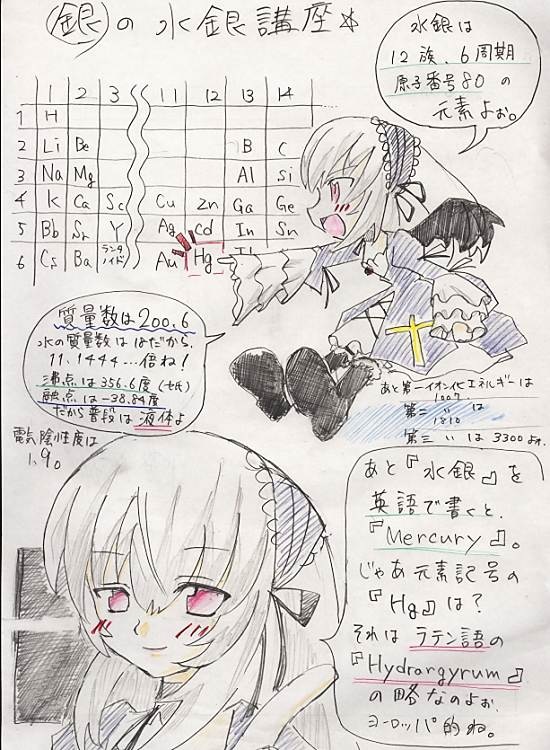 銀の水銀講座☆
水銀は
12族、6周期
原子番号80の
元素よぉ。
1 2 3 11 12 13 14
1 H
2 Li Be B C
3 Na Mg Al Si
4 K Ca Sc Cu Zn Ga Ge
5 Bb Sr Y Ag Cd In Sn
6 Cs Ba ランタノイド Au Hg Tl
質量数は200.6
水の質量数は18だから、
11.1444…倍ね!
沸点は356.6度(セ氏)
融点は-38.84度
だから普段は液体よ
電気陰性度は
1.9。
あと第一イオン化エネルギーは
1007、
第二 〃 は
1810
第三 〃 は3300よぉ。
あと『水銀』を
英語で書くと、
『Mercury』。
じゃあ元素記号の
『Hg』は?
それはラテン語の
『Hydrargyrum』
の略なのよぉ、
ヨーロッパ的ね。